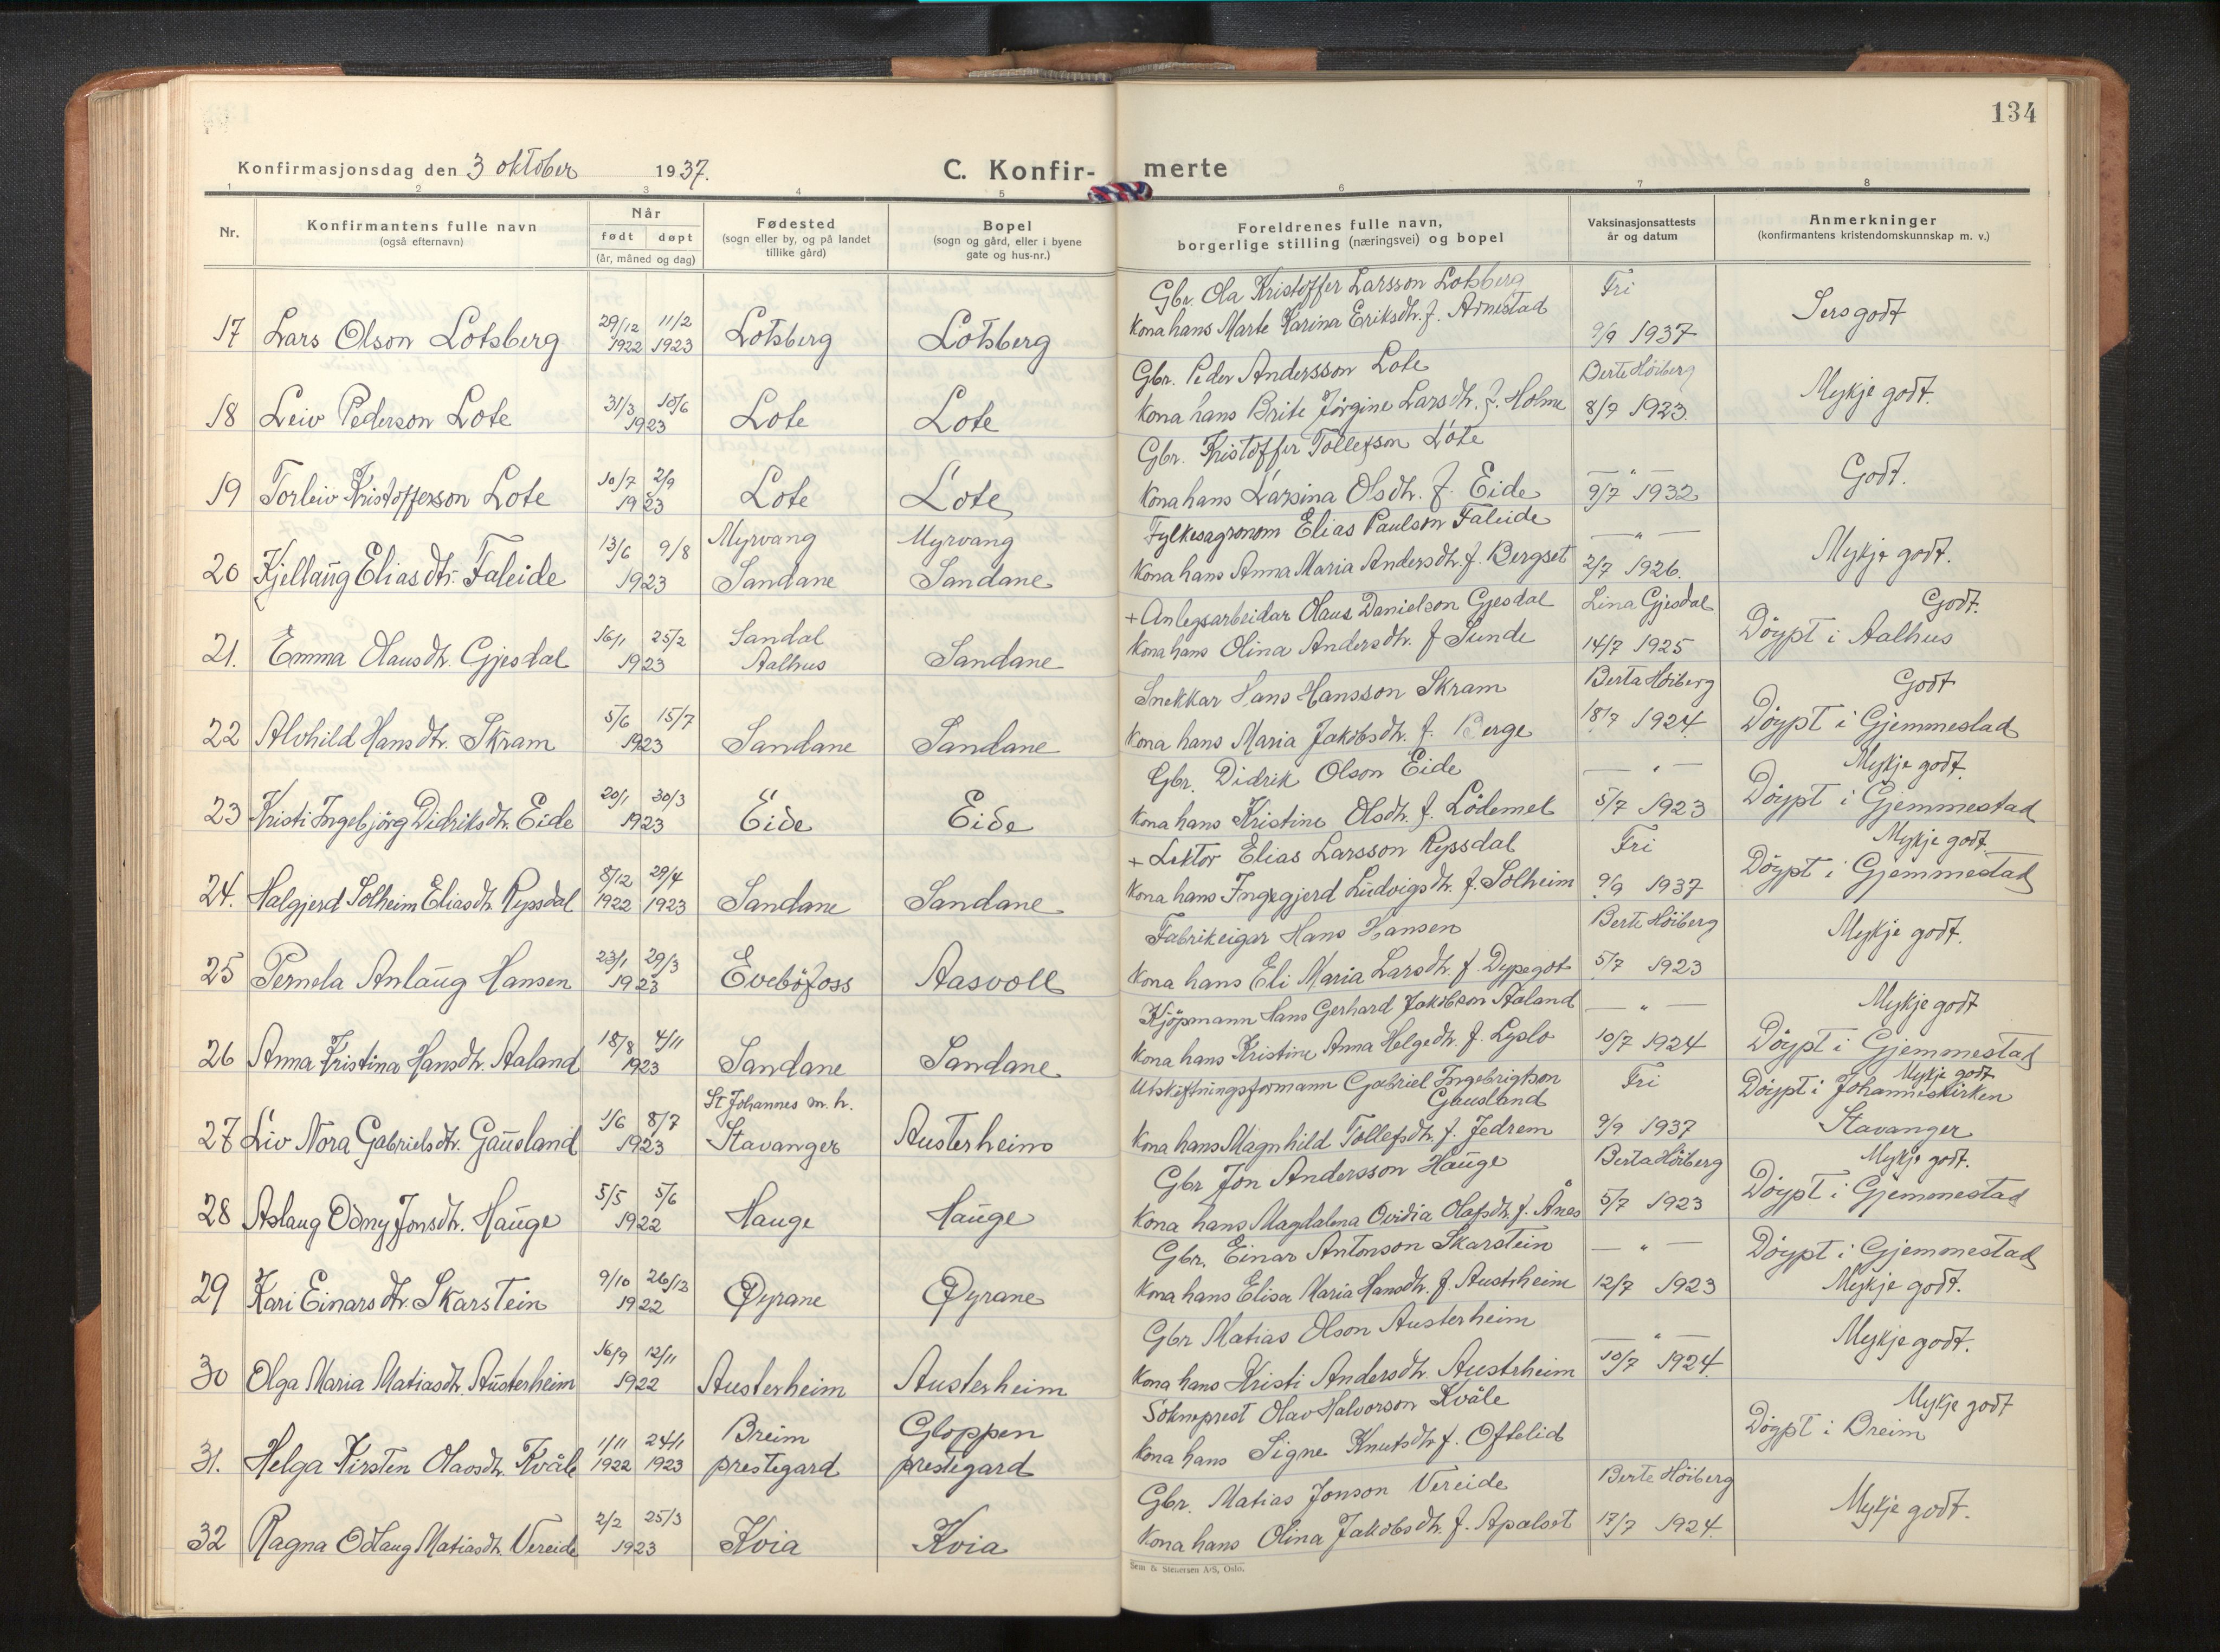 134
Konfirmasjonsdag den 3 oktober 1937.
C. Konfir-
merte
1 2 3 4 5 6 7 8
Nr.
Konfirmantens fulle navn
(også efternavn)
Når
født døpt
(år, måned og dag)
Fødested
(sogn eller by, og på landet
tillike gård)
Bopel
(sogn og gård, eller i byene
gate og hus-nr.)
Foreldrenes fulle navn,
borgerlige stilling (næringsvei) og bopel
Vaksinasjonsattests
år og datum
Anmerkninger
(konfirmantens kristendomskunnskap m. v.)
Gbr. Ola Kristoffer Larsson Lotsberg Fri
17 Lars Olson Lotsberg 29/12 1922 11/2 1923 Lotsberg Lotsberg Kona hans Marte Karina Eriksdtr. f. Arnestad 9/9 1937 Sers godt
Gbr. Peder Andersson Lote Berte Höiberg
18 Leiv Pederson Lote 31/3 10/6 1923 Lote Lote Kona hans Brite Jörgine Larsdtr. f. Holme 8/7 1923. Mykje godt.
Gbr. Kristoffer Tollefson Lote — " —
19 Torleiv Kristofferson Lote 10/7 2/9 1923 Lote Lote Kona hans Larsina Olsdtr. f. Eide 9/7 1932 Godt.
Myrvang Myrvang Fylkesagronom Elias Paulson Faleide — " —
20 Kjellaug Eliasdtr. Faleide 13/6 9/8 1923 Sandane Sandane Kona hans Anna Maria Andersdtr. f. Bergset 2/7 1926. Mykje godt.
Sandal + Anlegsarbeidar Olaus Danielson Gjesdal Lina Gjesdal Godt.
21. Emma Olausdtr. Gjesdal 16/1 25/2 1923 Aalhus Sandane Kona hans Olina Andersdtr. f Sunde 14/7 1925 Döypt i Aalhus
Snekkar Hans Hansson Skram Berta Höiberg Godt
22 Alvhild Hansdtr. Skram 5/6 15/7 1923 Sandane Sandane Kona hans Maria Jakobsdtr. f. Berge 18/7 1924. Döypt i Gjemmestad
Gbr. Didrik Olson Eide — " — Mykje godt.
23 Kristi Ingebjörg Didriksdtr. Eide 20/1 30/3 1923 Eide Eide Kona hans Kristine Olsdtr. f. Lödemel 5/7 1923 Döypt i Gjemmestad
+ Lektor Elias Larsson Ryssdal Fri Mykje godt.
24. Halgjerd Solheim Eliasdtr. Ryssdal 8/12 1922 29/4 1923 Sandane Sandane Kona hans Ingegjerd Ludvigsdtr. f. Solheim 9/9 1937 Döypt i Gjemmestad
Fabrikeigar Hans Hansen Berte Höiberg
25 Pernela Anlaug Hansen 23/1 29/3 1923 Eveböfoss Aasvoll Kona hans Eli Maria Larsdtr. f. Dypegot 5/7 1923 Mykje godt.
Kjöpmann Hans Gerhard Jakobson Aaland — " — Mykje godt
26 Anna Kristina Hansdtr. Aaland 18/8 4/11 1923 Sandane Sandane Kona hans Kristine Anna Helgedtr. f. Lyslo 10/7 1924 Döypt i Gjemmestad
St Johannes m. h. Utskiftningsformann Gabriel Ingebrigtson Gausland Fri Mykje godt
27 Liv Nora Gabrielsdtr. Gausland 1/6 8/7 1923 Stavanger Austerheim Kona hans Magnhild Tollefsdtr. f. Jedrem 9/9 1937 Döypt i Johanneskirken Stavanger
Gbr Jon Andersson Hauge Berta Höiberg Mykje godt.
28 Aslaug Odny Jonsdtr. Hauge 5/5 5/6 1922 Hauge Hauge Kona hans Magdalena Ovidia Olafsdtr. f. Ånes 5/7 1923 Döypt i Gjemmestad
Gbr. Einar Antonson Skarstein — " — Döypt i Gjemmestad
29 Kari Einarsdtr. Skarstein 9/10 26/12 1922 Øyrane Øyrane Kona hans Elisa Maria Hansdtr. f. Austrheim 12/7 1923 Mykje godt.
Gbr Matias Olson Austerheim — " —
30 Olga Maria Matiasdtr. Austerheim 16/9 12/11 1922 Austerheim Austerheim Kona hans Kristi Andersdtr. Austrheim 10/7 1924. Mykje godt.
Breim Gloppen Sokneprest Olav Halvorson Kvåle Mykje godt
31. Helga Kirsten Olavsdtr. Kvåle 1/11 1922 24/1 1923 prestegard prestegard Kona hans Signe Knutsdtr f. Oftelid Döypt i Breim
Gbr. Matias Jonson Vereide Berte Höiberg
32 Ragna Odlaug Matiasdtr. Vereide 2/2 25/3 1923 Kvia Kvia Kona hans Olina Jakobsdtr. f. Apalset 17/7 1924. Mykje godt.
Sem & Stenersen A/S, Oslo.